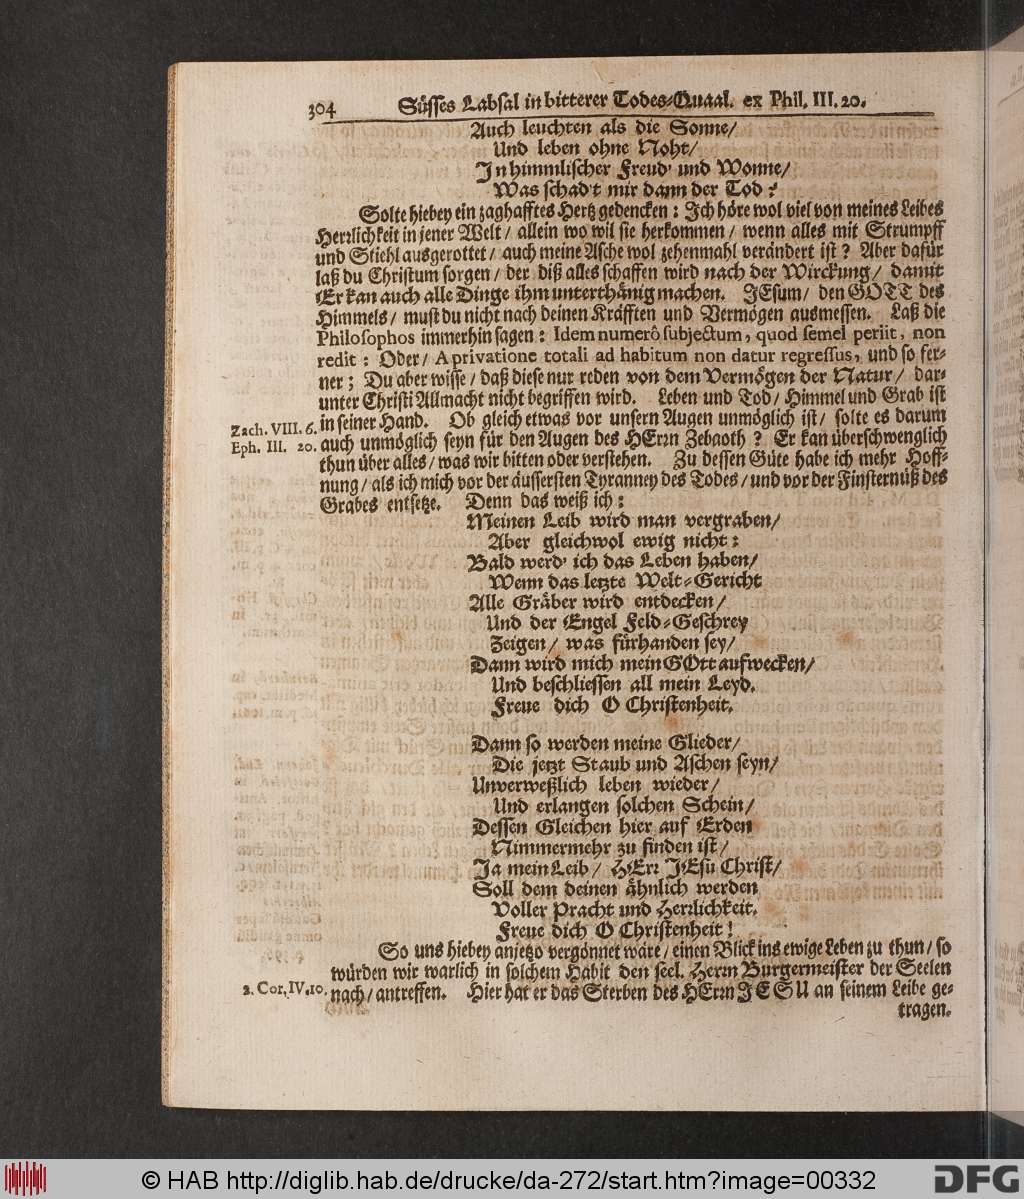 304 Süsses Labsal in bitterer Todes-Quaal. ex Phil. III. 20.
Auch leuchten als die Sonne/
Und leben ohne Noht/
In himmlischer Freud' und Wonne/
Was schad't mir dann der Tod?
Solte hiebey ein zaghafftes Hertz gedencken: Ich höre wol viel von meines Leibes
Herrlichkeit in jener Welt/ allein wo wil sie herkommen/ wenn alles mit Strumpff
und Stiehl ausgerottet/ auch meine Asche wol zehenmahl verändert ist? Aber dafür
laß du Christum sorgen/ der diß alles schaffen wird nach der Wirckung/ damit
Er kan auch alle Dinge ihm unterthänig machen. JEsum/ den GOTT des
Himmels/ must du nicht nach deinen Kräfften und Vermögen ausmessen. Laß die
Philosophos immerhin sagen: Idem numerô subjectum, quod semel periit, non
redit: Oder/ A privatione totali ad habitum non datur regressus, und so fer-
ner; Du aber wisse/ daß diese nur reden von dem Vermögen der Natur/ dar-
unter Christi Allmacht nicht begriffen wird. Leben und Tod/ Himmel und Grab ist
Zach. VIII. 6. in seiner Hand. Ob gleich etwas vor unsern Augen unmöglich ist/ solte es darum
Eph. III. 20. auch unmöglich seyn für den Augen des HErrn Zebaoth? Er kan überschwenglich
thun über alles/ was wir bitten oder verstehen. Zu dessen Güte habe ich mehr Hoff-
nung/ als ich mich vor der äussersten Tyranney des Todes/ und vor der Finsternüß des
Grabes entsetze. Denn das weiß ich:
Meinen Leib wird man vergraben/
Aber gleichwol ewig nicht:
Bald werd' ich das Leben haben/
Wenn das letzte Welt-Gericht
Alle Gräber wird entdecken/
Und der Engel Feld-Geschrey
Zeigen/ was fürhanden sey/
Dann wird mich mein GOtt aufwecken/
Und beschliessen all mein Leyd.
Freue dich O Christenheit.
Dann so werden meine Glieder/
Die jetzt Staub und Aschen seyn/
Unverweßlich leben wieder/
Und erlangen solchen Schein/
Dessen Gleichen hier auf Erden
Nimmermehr zu finden ist/
Ja mein Leib/ HErr JEsu Christ/
Soll dem deinen ähnlich werden
Voller Pracht und Herrlichkeit.
Freue dich O Christenheit!
So uns hiebey anjetzo vergönnet wäre/ einen Blick ins ewige Leben zu thun/ so
würden wir warlich in solchem Habit den seel. Herrn Burgermeister der Seelen
2. Cor. IV. 10. nach/ antreffen. Hier hat er das Sterben des HErrn JESU an seinem Leibe ge-
tragen.
© HAB http://diglib.hab.de/drucke/da-272/start.htm?image=00332
DFG